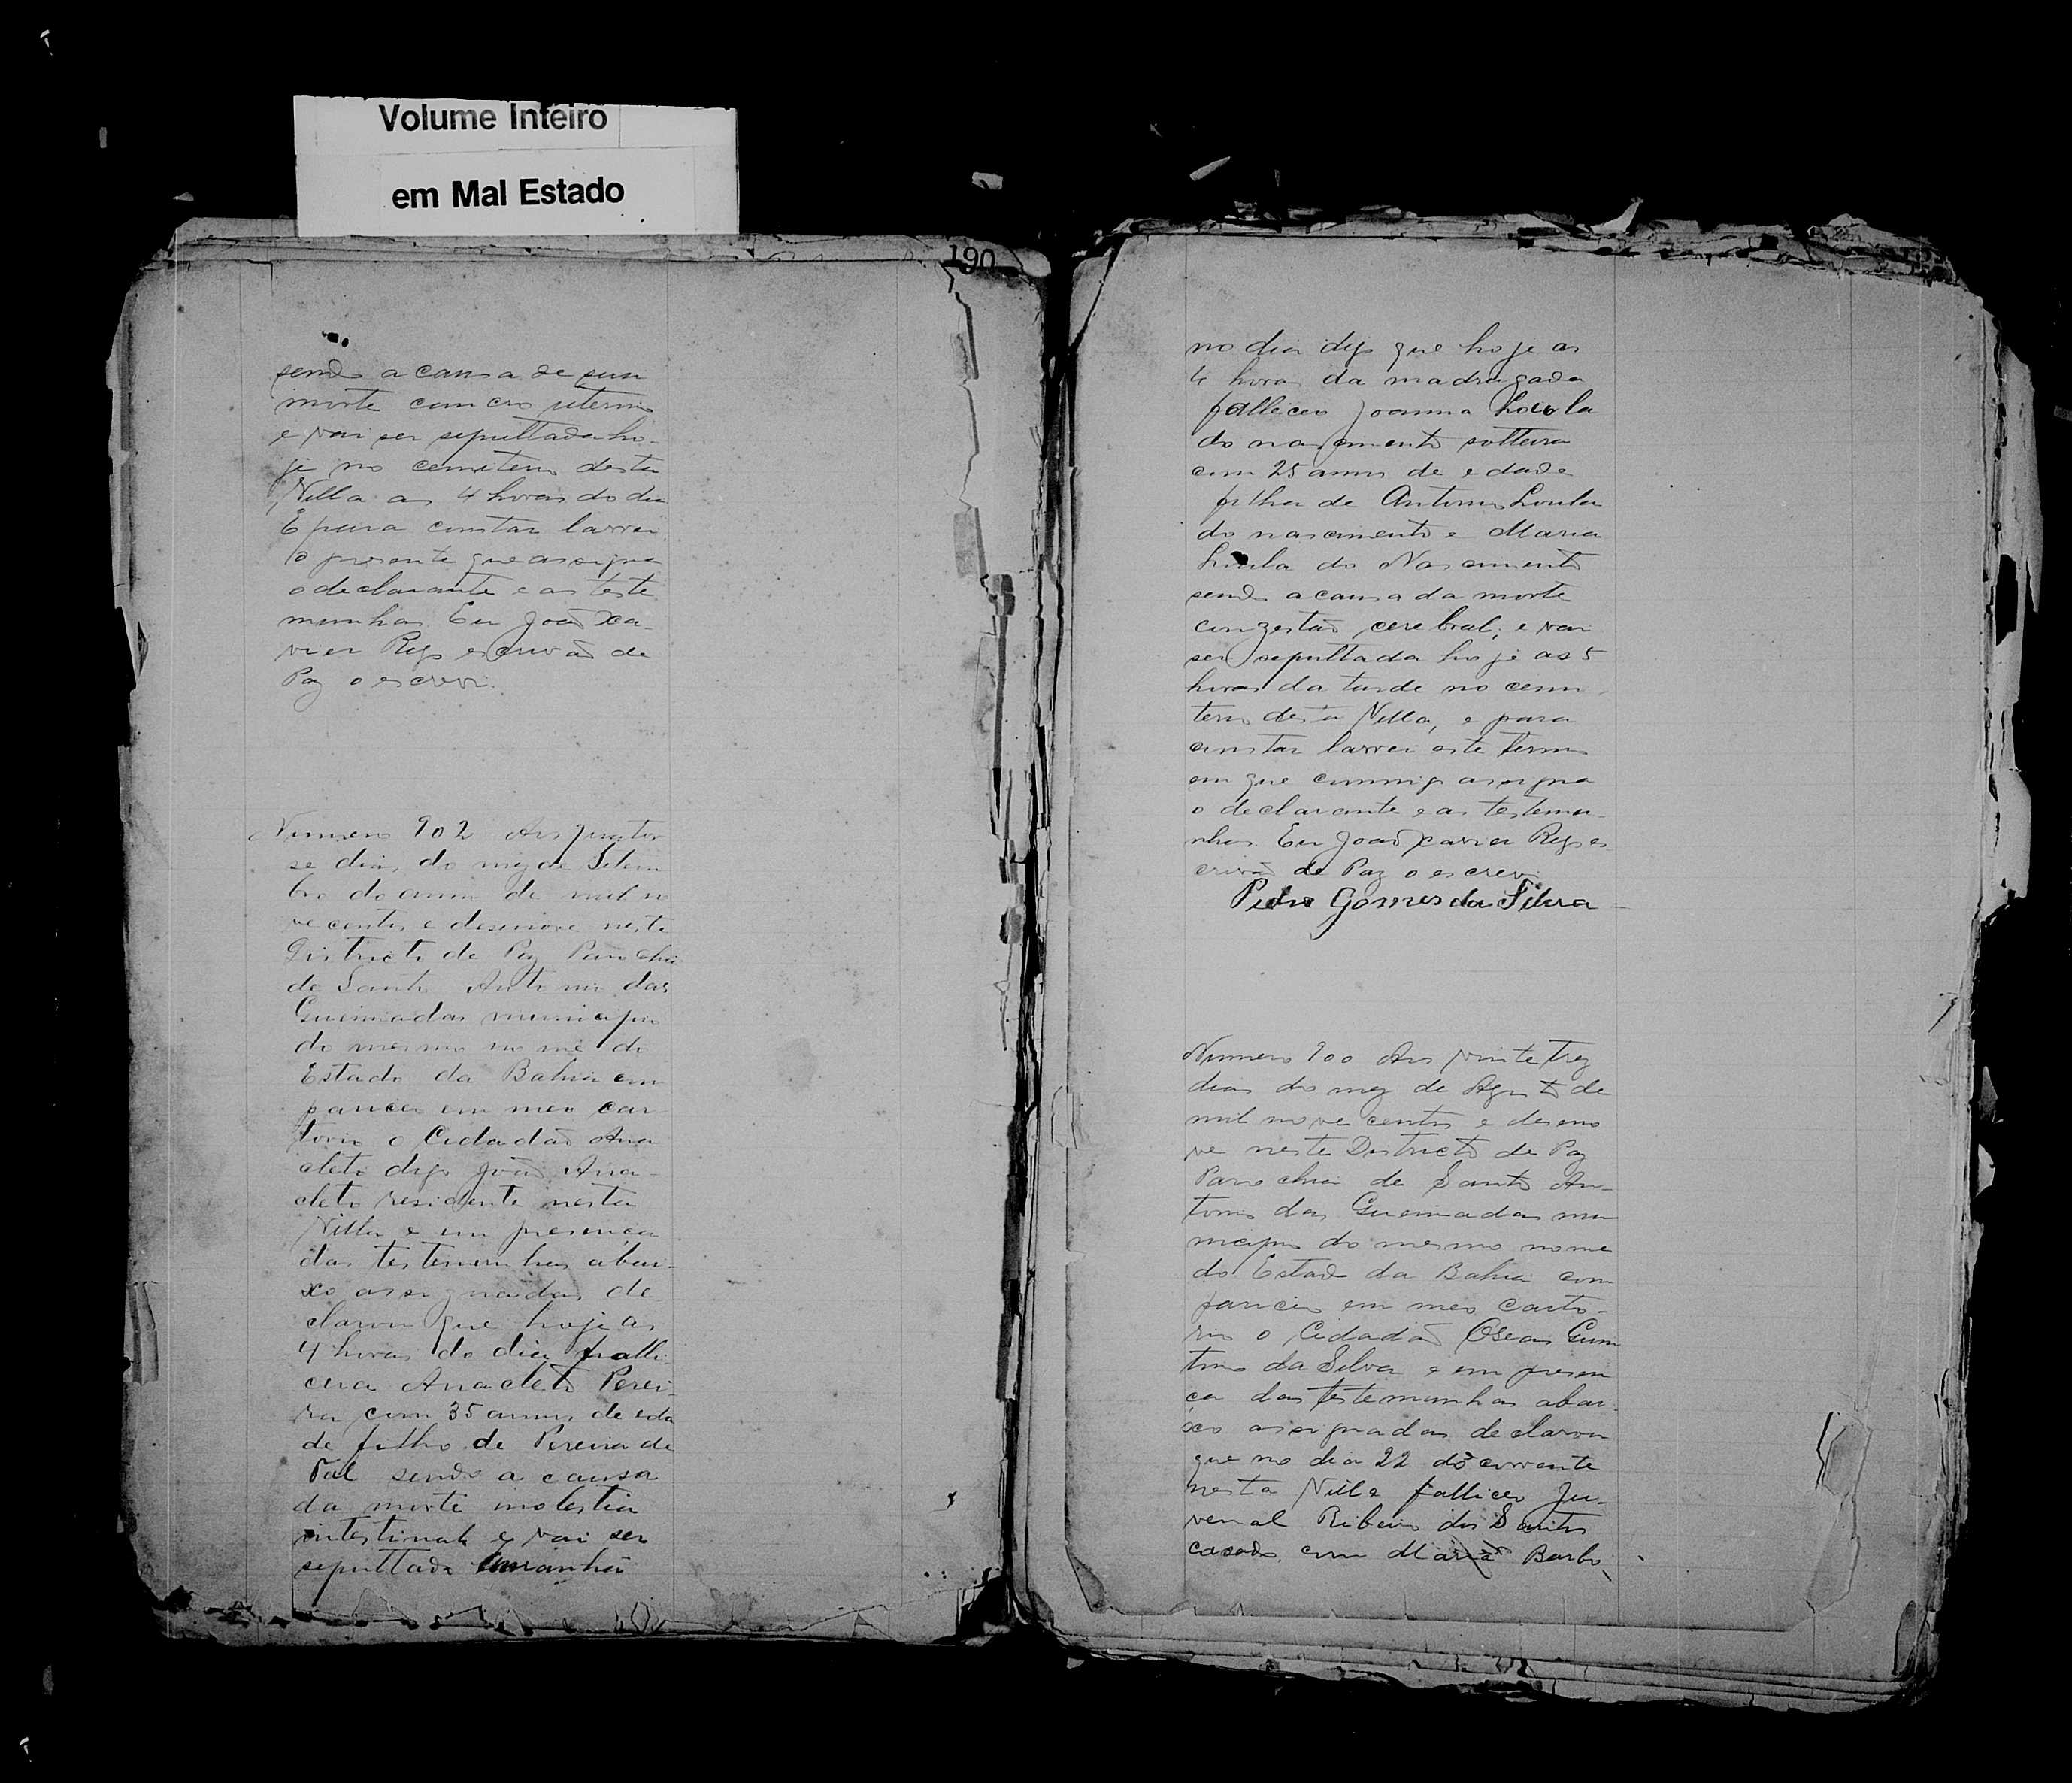 Volume Inteiro
em Mal Estado
190
sendo a causa de sua
morte cancro uterino
e vai ser sepultada ho-
je no cemiterio desta
Villa as 4 horas do dia
E para constar lavrei
o presente que assigna
o declarante e as teste
munhas Eu João Xa-
vier Rego escrivão de
Paz o escrevi.
Numero 902 Aos quator
se dias do mez de Setem
bro do anno de mil no
ve centos e desenove neste
Districto de Paz Parochia
de Santo Antonio das
Queimadas municipio
do mesmo nome do
Estado da Bahia com
pareceu em meo car
torio o Cidadão Ana
cleto digo João Ana-
cleto residente nesta
Villa e em presença
das testemunhas abai-
xo assignadas de
clarou que hoje as
4 horas do dia falle
ceu Anacleto Perei-
ra com 35 annos de eda
de filho de Pereira de
Tal sendo a causa
da morte molestia
intestinal e vai ser
sepultado amanhã
no dia digo que hoje as
4 horas da madrugada
falleceu Joanna Loiola
do nascimento solteira
com 25 annos de edade
filha de Antonio Loula
do nascimento e Maria
Loula do Nascimento
sendo a causa da morte
congestão cerebral, e vai
ser sepultada hoje as 5
horas da tarde no cemi
terio desta Villa, e para
constar lavrei este termo
em que commigo assigna
o declarante e as testemu-
nhas. Eu João Xavier Rego es
crivão de Paz o escrevi
Pedro Gomes da Silva
Numero 900 Aos vinte trez
dias do mez de Agosto de
mil nove centos e deseno
ve neste Districto de Paz
Parochia de Santo An-
tonio das Queimadas mu
nicipio do mesmo nome
do Estado da Bahia com
pareceu em meo carto-
rio o Cidadão Oseas
da Silva e em presen
ça das testemunhas abai-
xo assignadas declarou
que no dia 22 do corrente
nesta Villa falleceu Ju-
venal Ribeiro dos Santos
casado com Maria Barbo